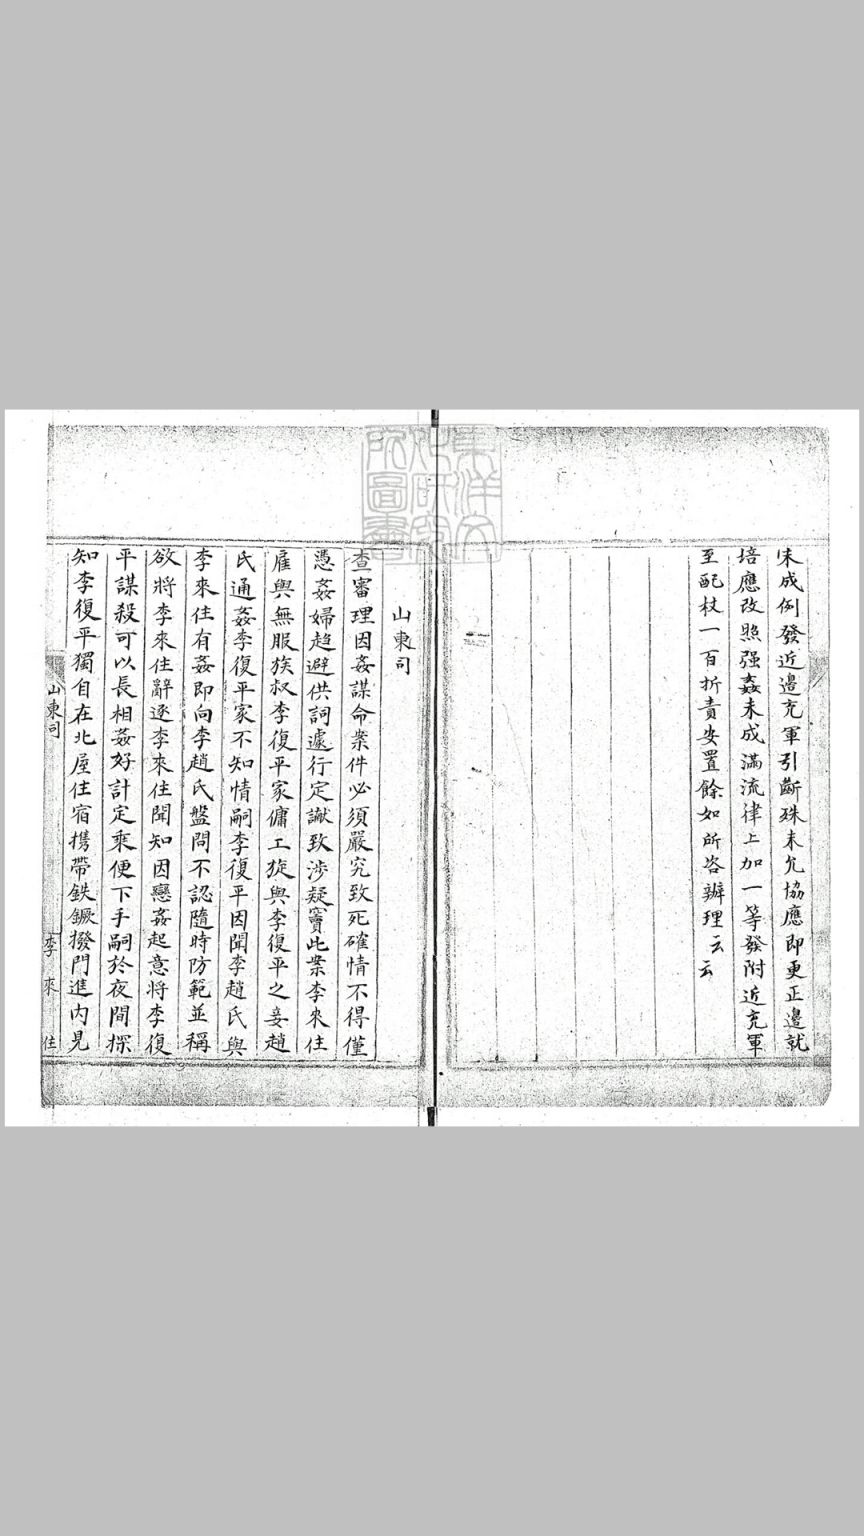 未成例發近邉充軍引斷殊未允協應即更正邉就
培應改照强姦未成滿流律上加一等發附近充軍
至配杖一百折責安置餘如所咨辦理云云
山東司
查審理因姦謀命案件必須嚴究致死確情不得僅
憑姦婦趋避供詞遽行定讞致涉疑竇此案李來住
雇與無服族叔李復平家傭工旋與李復平之妾趙
氏通姦李復平家不知情嗣李復平因聞李趙氏與
李來住有姦即向李趙氏盤問不認隨時防範並稱
欲將李來住辭逐李來住聞知因戀姦起意將李復
平謀殺可以長相姦好計定乘便下手嗣於夜間探
知李復平獨自在北屋住宿携帶鉄鐝撥門進內見
山東司
李來住
東洋文
化研究
所圖書